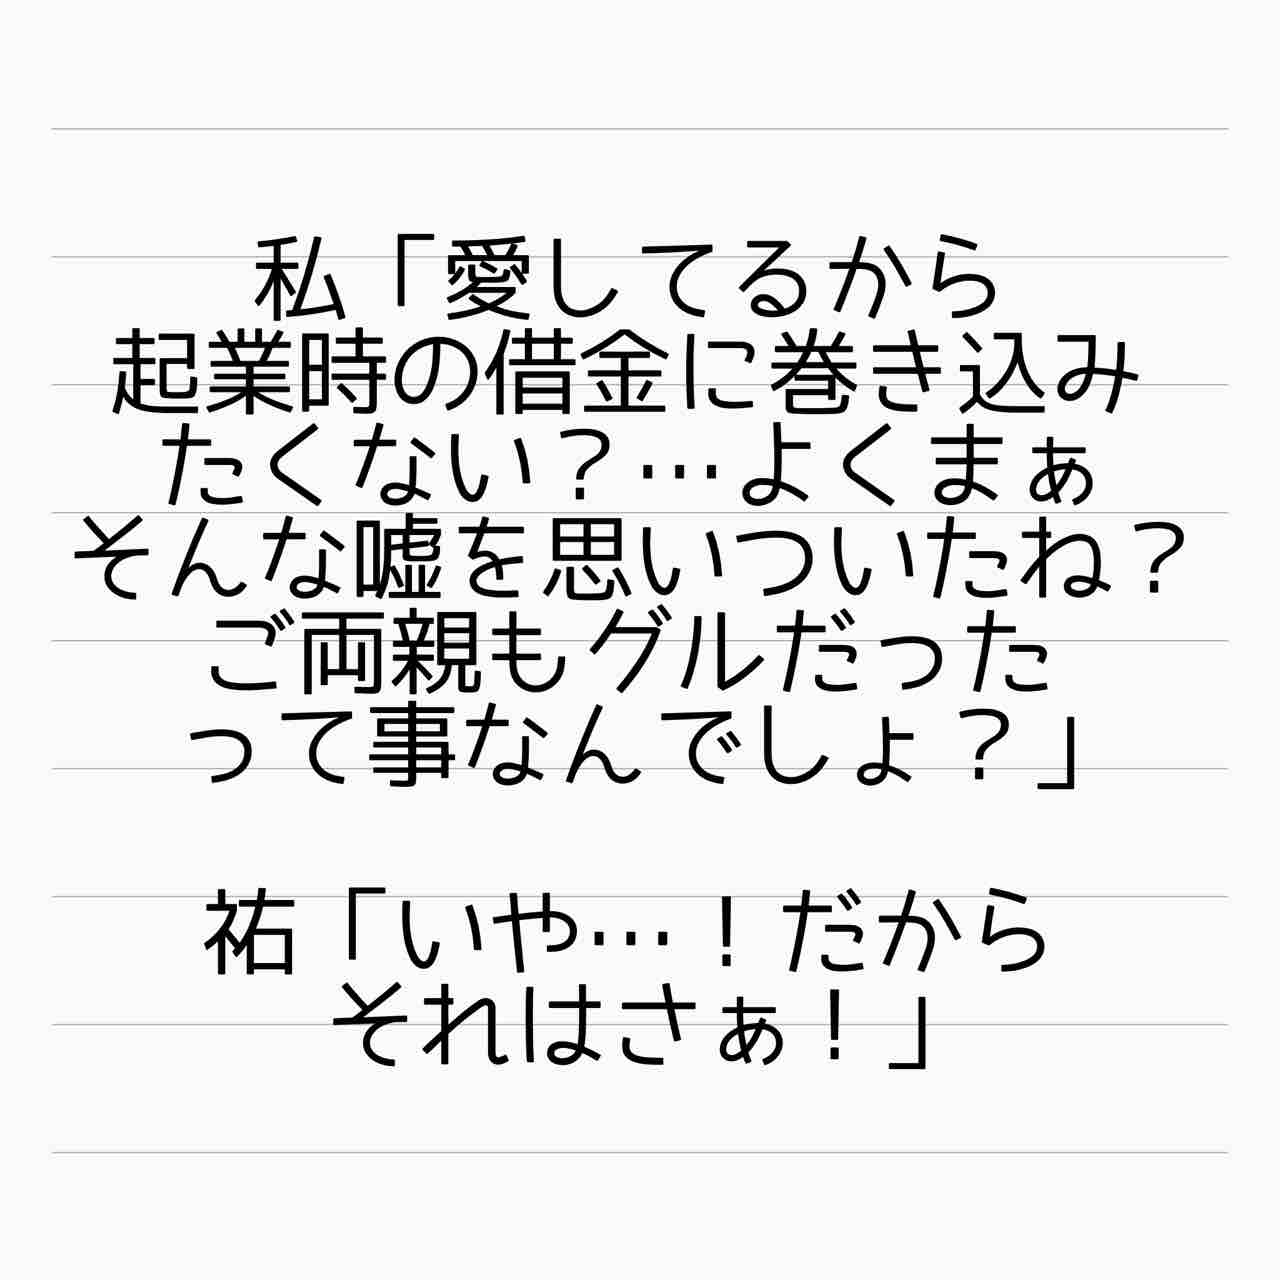 私「愛してるから
起業時の借金に巻き込み
たくない？…よくまぁ
そんな嘘を思いついたね？
ご両親もグルだった
って事なんでしょ？」
祐「いや…！だから
それはさぁ！」